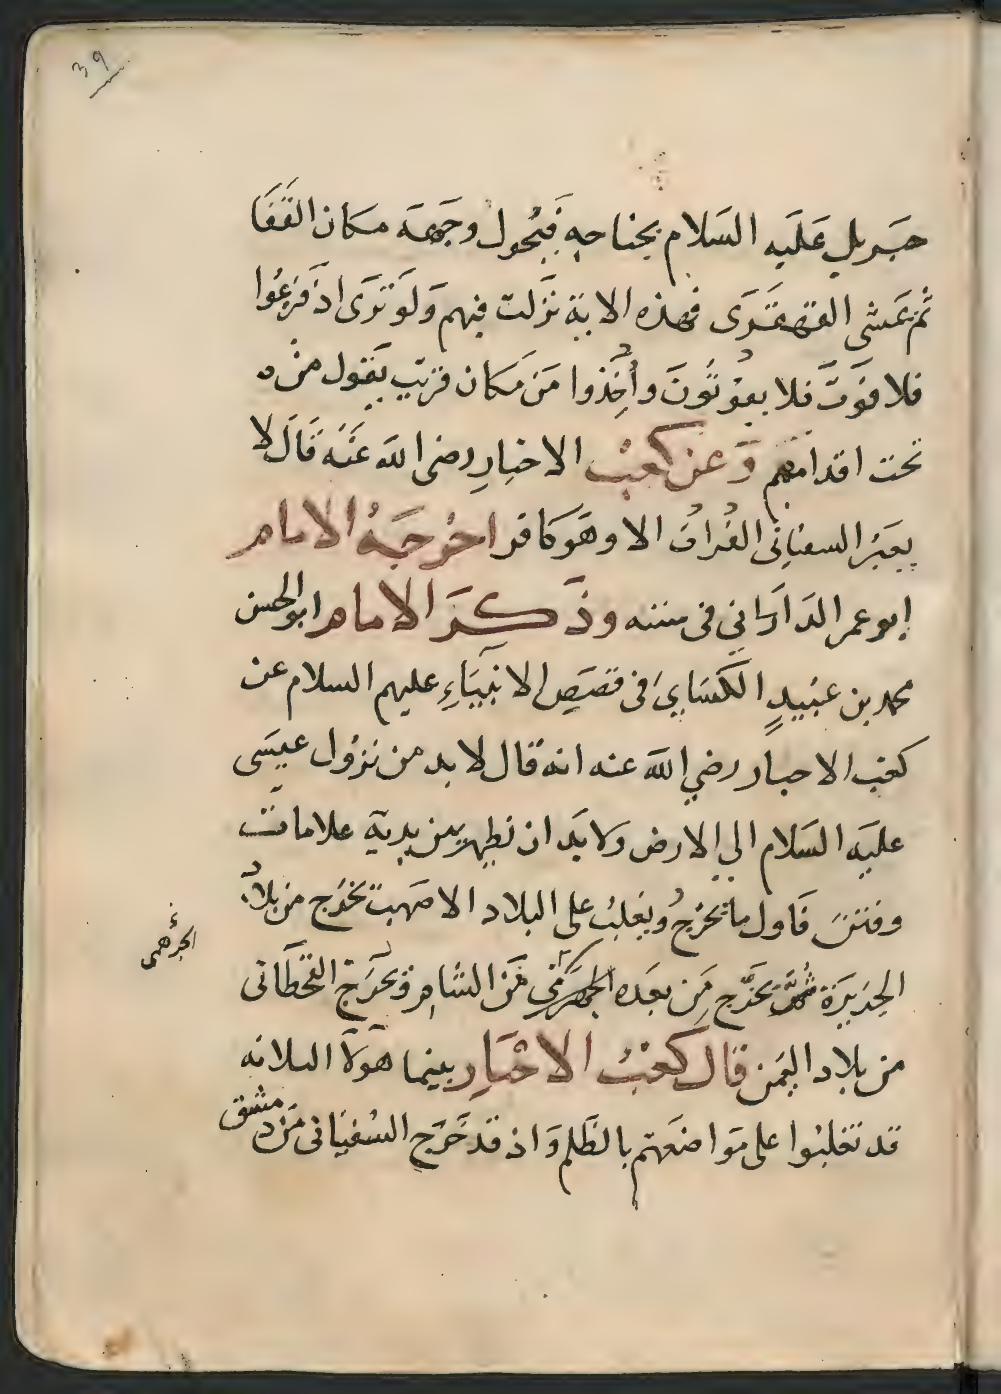 39
جبريل عليه السلام بجناحه فيحول وجهه مكان القفا
ثم يمشى القهقرى فهذه الاية نزلت فيهم ولو ترى اذ فزعوا
فلا فوت فلا يفوتون وأخذوا من مكان قريب يقول من
تحت اقدامهم وعن كعب الاخبار رضى الله عنه قال لا
يعبر السفيانى الفرات الا وهو كافر اخرجه الامام
ابو عمر الدارانى فى سننه وذكر الامام ابو الحسن
محمد بن عبيد الكسايي فى قصص الانبياء عليهم السلام عن
كعب الاحبار رضي الله عنه انه قال لا بد من نزول عيسى
عليه السلام الي الارض ولا بد ان تظهر بين يديه علامات
وفتن فاول ما يخرج ويغلب على البلاد الاصهب يخرج من بلاد
الجزيرة ثم يخرج من بعده الجرهمى من الشام ويخرج القحطانى
من بلاد اليمن قال كعب الاخبار بينما هولا الثلاثه
قد تغلبوا على مواضعهم بالظلم واذ قد خرج السفيانى من دمشق
الجرهمى